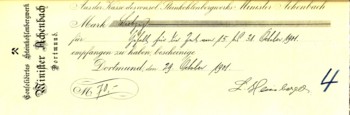 Consolidiertes Steinkohlenbergwerk
Minister Achenbach
Dortmund.
Aus der Kasse des consol. Steinkohlenbergwerks Minister Achenbach
Mark
für Gehalt für die Zeit vom 15 bis 31 October 1901
empfangen zu haben, bescheinige
Dortmund, den 29 October 1901.
M. 70,-
4